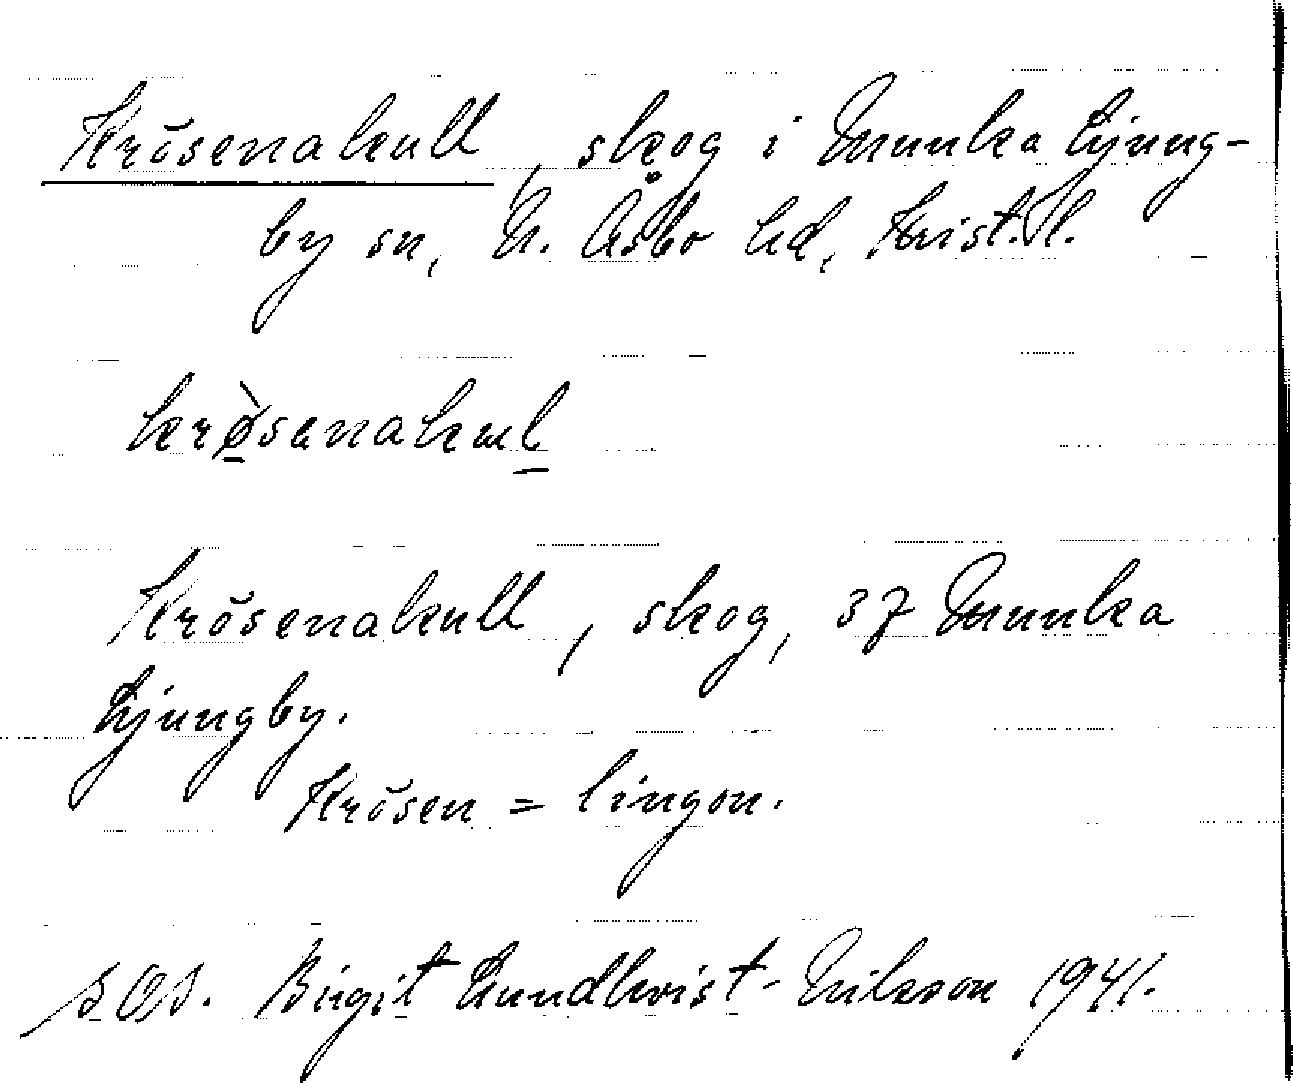 Krösenakull, skog i Munka Ljung-
by sn, N. Åsbo hd, Krist. l.
krø̀senakul
Krösenakull, skog, 37 Munka
Ljungby.
Krösen = lingon.
Birgit Lundkvist-Nilsson 1941.